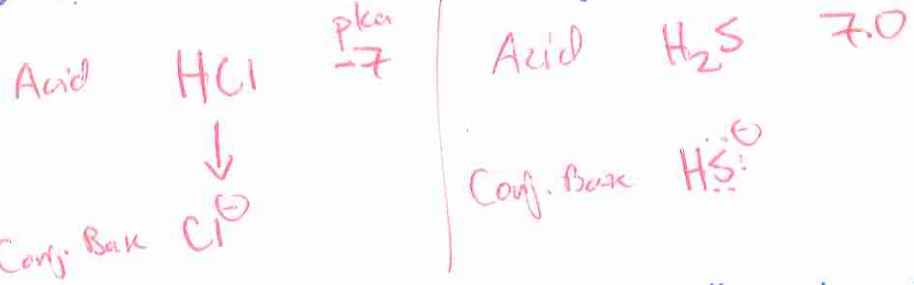 pka
Acid HCl -7
↓
Conj. Base Cl⊖
Acid H₂S 7.0
Conj. Base HS⊖